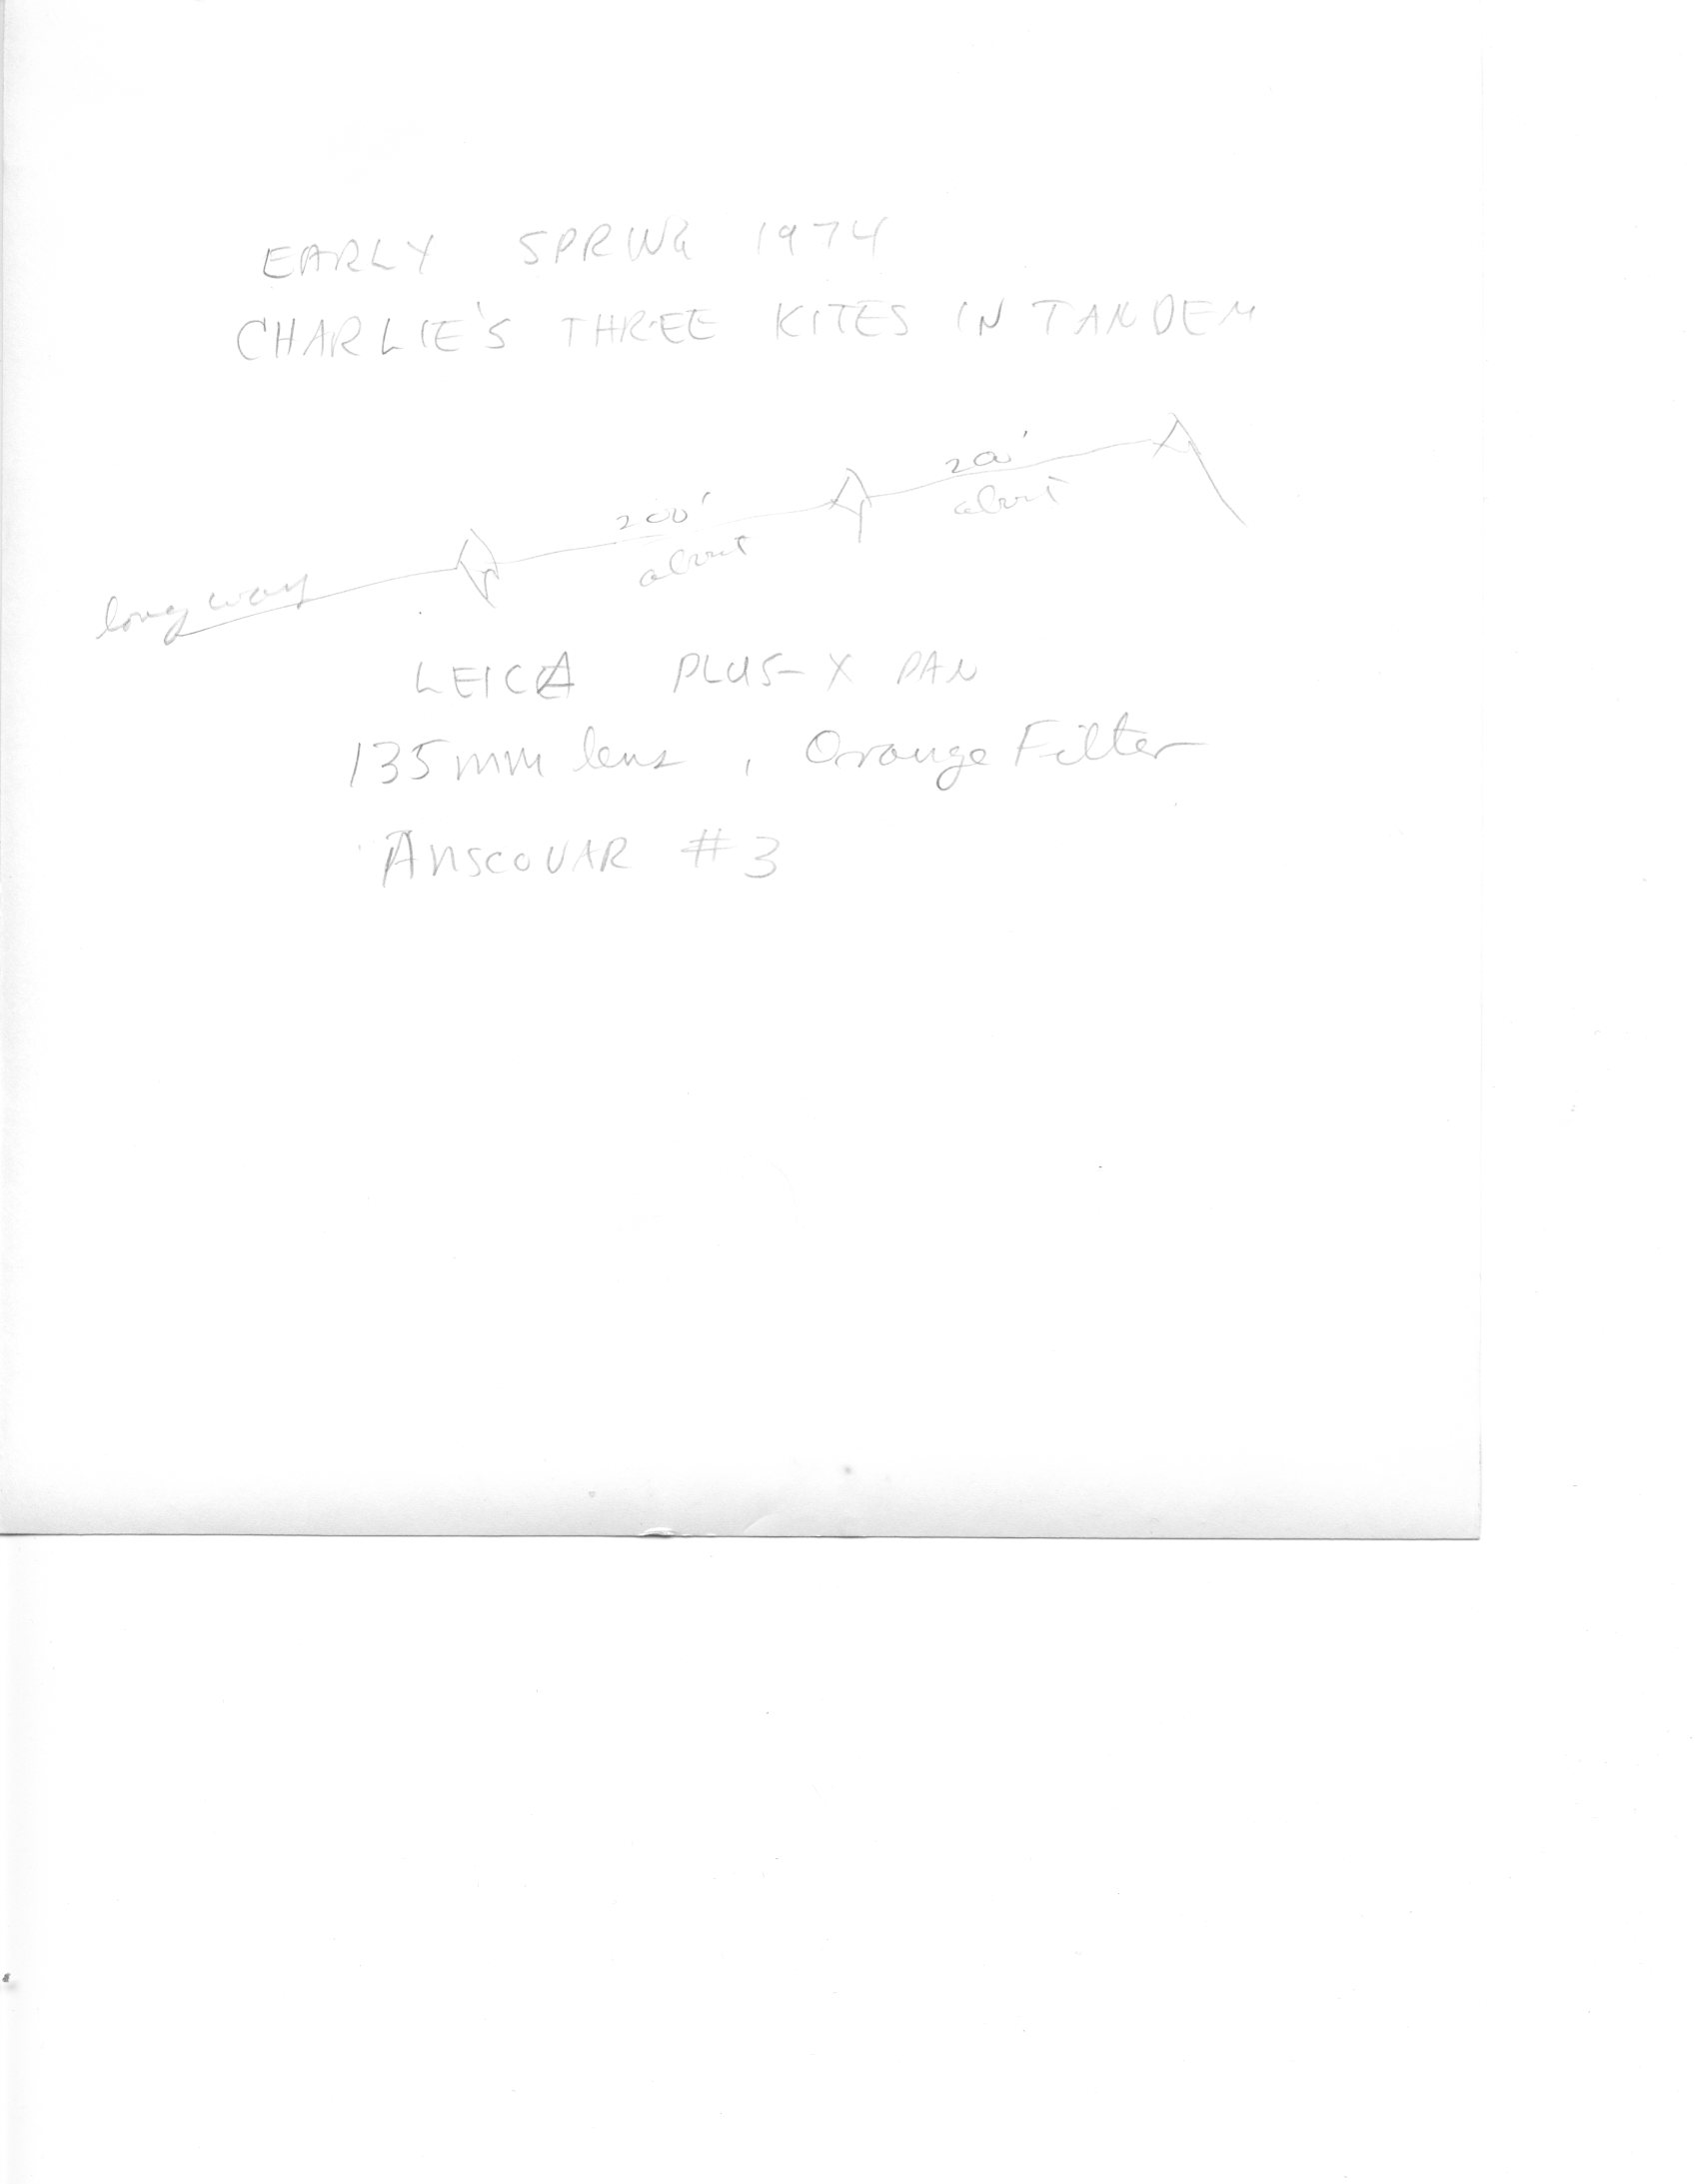 EARLY SPRING 1974
CHARLIE'S THREE KITES IN TANDEM
200'
about
200'
about
long way
LEICA PLUS-X PAN
135mm lens, Orange Filter
ANSCOVAR #3